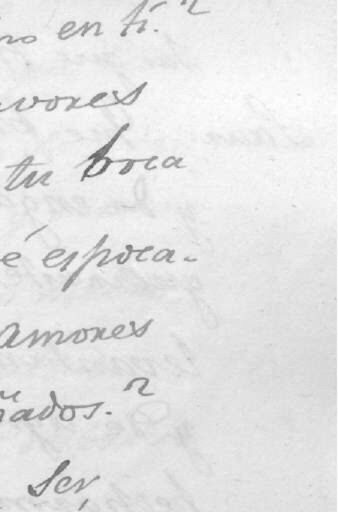 no en ti.
avores
tu boca
é es poca.
amores
ñados.
ser,